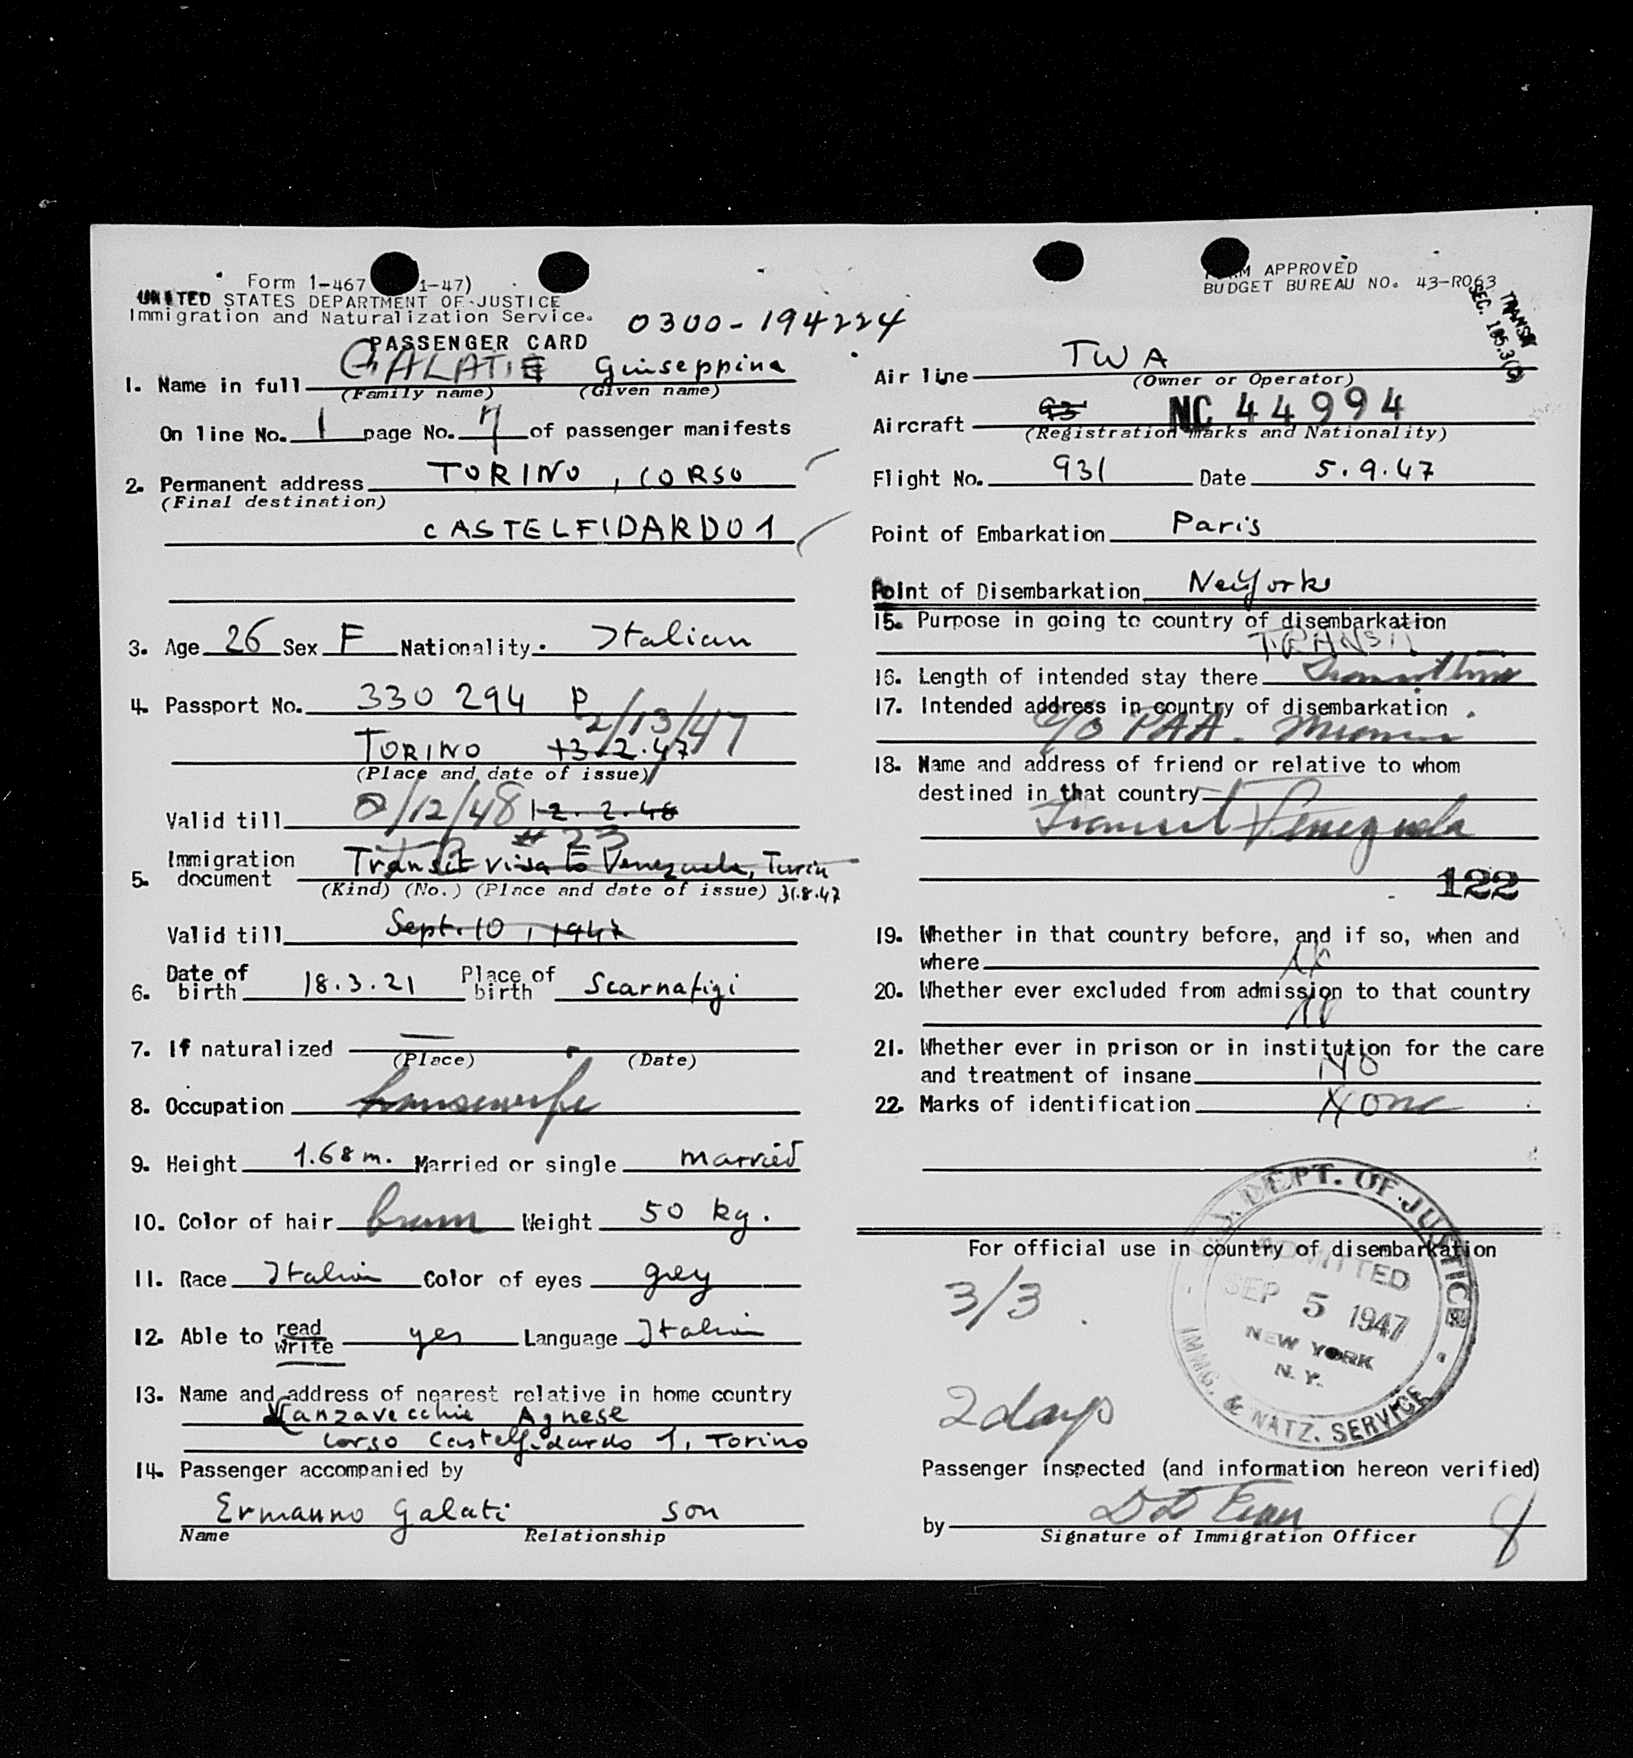 Form I-467 1-47)
UNITED STATES DEPARTMENT OF JUSTICE
Immigration and Naturalization Service.
0300-194224
PASSENGER CARD
1. Name in full GALATI Giuseppina
(Family name) (Given name)
On line No. 1 page No. 7 of passenger manifests
2. Permanent address TORINO, CORSO
(Final destination)
CASTELFIDARDO 1
3. Age 26 Sex F Nationality. Italian
4. Passport No. 330 294 P
2/13/47
TORINO 13.2.47
(Place and date of issue)
Valid till 2/12/48 12.2.48
# 23
5. Immigration document Transit visa to Venezuela, Turin
(Kind) (No.) (Place and date of issue) 31.8.47
Valid till Sept. 10, 1947
6. Date of birth 18.3.21 Place of birth Scarnafigi
7. If naturalized —
(Place) (Date)
8. Occupation housewife
9. Height 1.68 m. Married or single married
10. Color of hair brown Weight 50 kg.
11. Race Italian Color of eyes grey
12. Able to read write yes Language Italian
13. Name and address of nearest relative in home country
Vanzavecchie Agnese
Corso Castelfidardo 1, Torino
14. Passenger accompanied by
Ermanno Galati son
Name Relationship
FORM APPROVED
BUDGET BUREAU NO. 43-R063
TRANSIT
SEC. 105.3()
Air line TWA
(Owner or Operator)
Aircraft 93 NC 44994
(Registration marks and Nationality)
Flight No. 931 Date 5.9.47
Point of Embarkation Paris
Point of Disembarkation New York
15. Purpose in going to country of disembarkation
TRANSIT
16. Length of intended stay there
17. Intended address in country of disembarkation
c/o PAA - Miami
18. Name and address of friend or relative to whom
destined in that country
Transit Venezuela
122
19. Whether in that country before, and if so, when and
where No
20. Whether ever excluded from admission to that country
No
21. Whether ever in prison or in institution for the care
and treatment of insane No
22. Marks of identification None
For official use in country of disembarkation
3/3
2 days
U.S. DEPT. OF JUSTICE
ADMITTED
SEP 5 1947
NEW YORK
N.Y.
IMMG. & NATZ. SERVICE
Passenger inspected (and information hereon verified)
by
Signature of Immigration Officer